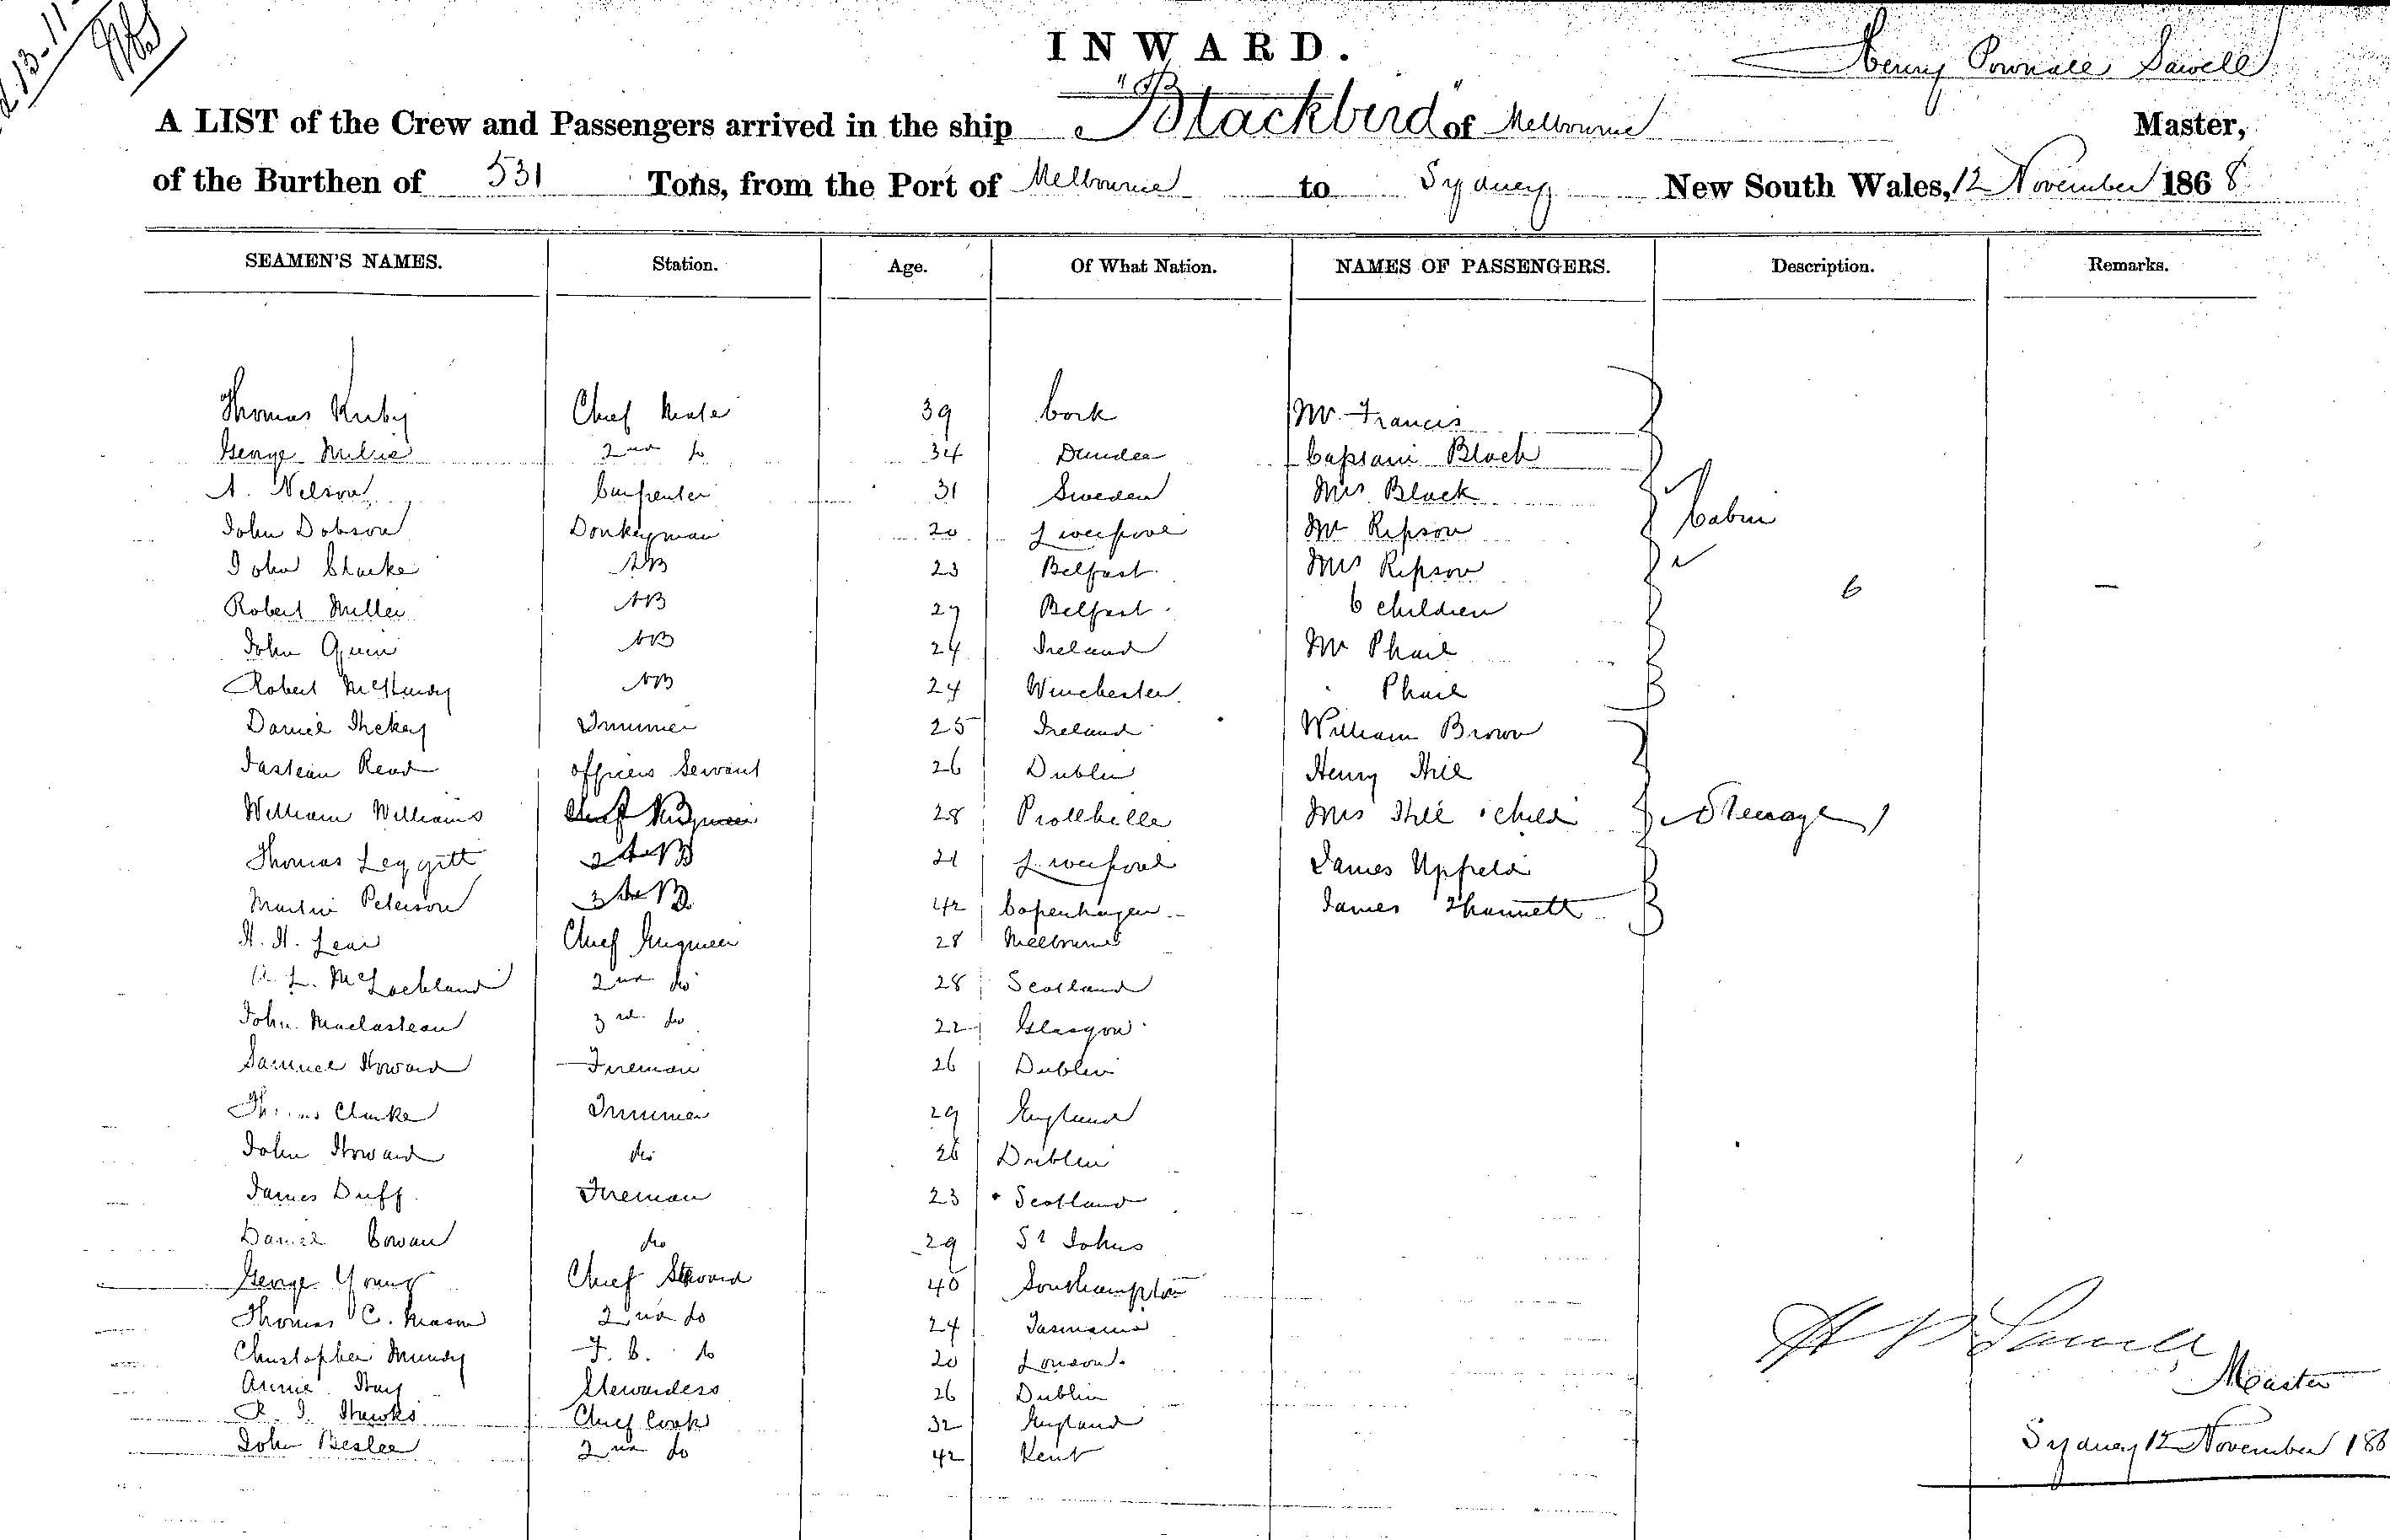 13-11-
INWARD.
Henry Pownall Sawell
A LIST of the Crew and Passengers arrived in the ship "Blackbird" of Melbourne Master,
of the Burthen of 531 Tons, from the Port of Melbourne to Sydney New South Wales, 12 November 1868
SEAMEN'S NAMES. Station. Age. Of What Nation. NAMES OF PASSENGERS. Description. Remarks.
Thomas Kirby Chief Mate 39 Cork Mr. Francis
George Milne 2nd do 34 Dundee Captain Black
A. Nelson Carpenter 31 Sweden Mrs Black
John Dobson Donkeyman 20 Liverpool Mr Ripson Cabin
John Clarke AB 23 Belfast Mrs Ripson
Robert Miller AB 27 Belfast 6 children 6 —
John Quin AB 24 Ireland Mr Phail
Robert McHardy AB 24 Winchester Phail
Daniel Hickey Trimmer 25 Ireland William Brown
Read officers Servant 26 Dublin Henry Hill
William Williams 28 Mrs Hill & child Steerage
Thomas Leggitt AB 21 Liverpool James Upfield
Martin Peterson AB 42 Copenhagen James
H. H. Lear Chief Engineer 28 Melbourne
L. McLochland 2nd do 28 Scotland
John 3rd do 22 Glasgow
Samuel Howard Fireman 26 Dublin
Thomas Clarke Trimmer 29 England
John Howard do 26 Dublin
James Duff Fireman 23 Scotland
Daniel Cowan do 29 St Johns
George Young Chief Steward 40 Southampton
Thomas C. Mason 2nd do 24 Tasmania
Christopher Mundy F. C. do 20 London
Annie Hay Stewardess 26 Dublin
Hawks Chief Cook 32 England
John Beslee 2nd do 42 Kent
H P Sawell
Master
Sydney 12 November 186